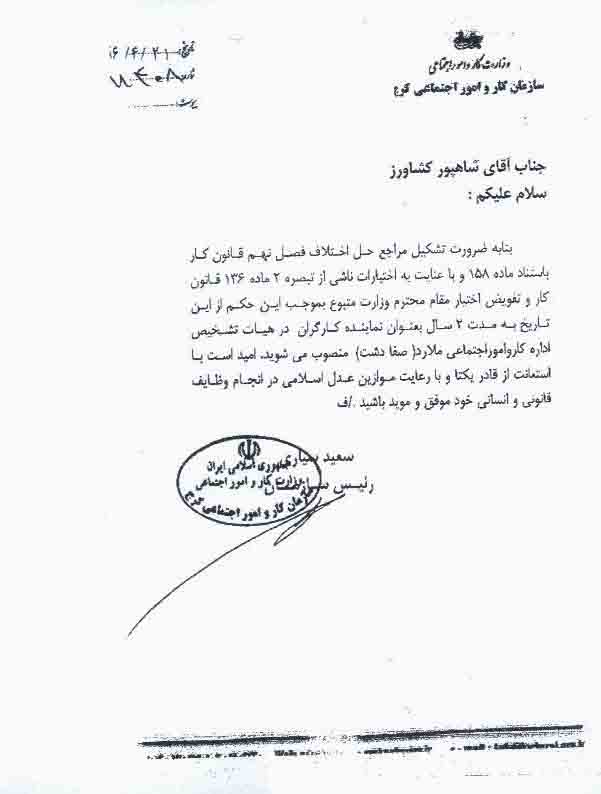 وزارت کار و امور اجتماعی
سازمان کار و امور اجتماعی کرج
تاریخ:
پیوست:
جناب آقای شاهپور کشاورز
سلام علیکم :
بنابه ضرورت تشکیل مراجع حل اختلاف فصل نهم قانون کار
باستناد ماده ۱۵۸ و با عنایت به اختیارات ناشی از تبصره ۲ ماده ۱۳۶ قانون
کار و تفویض اختیار مقام محترم وزارت متبوع بموجب این حکم از این
تاریخ به مدت ۲ سال بعنوان نماینده کارگران در هیات تشخیص
اداره کارواموراجتماعی ملارد( صفا دشت) منصوب می شوید. امید است با
استعانت از قادر یکتا و با رعایت موازین عدل اسلامی در انجام وظایف
قانونی و انسانی خود موفق و موید باشید ./ف
سعید
رئیس سازمان
جمهوری اسلامی ایران
وزارت کار و امور اجتماعی
سازمان کار و امور اجتماعی کرج